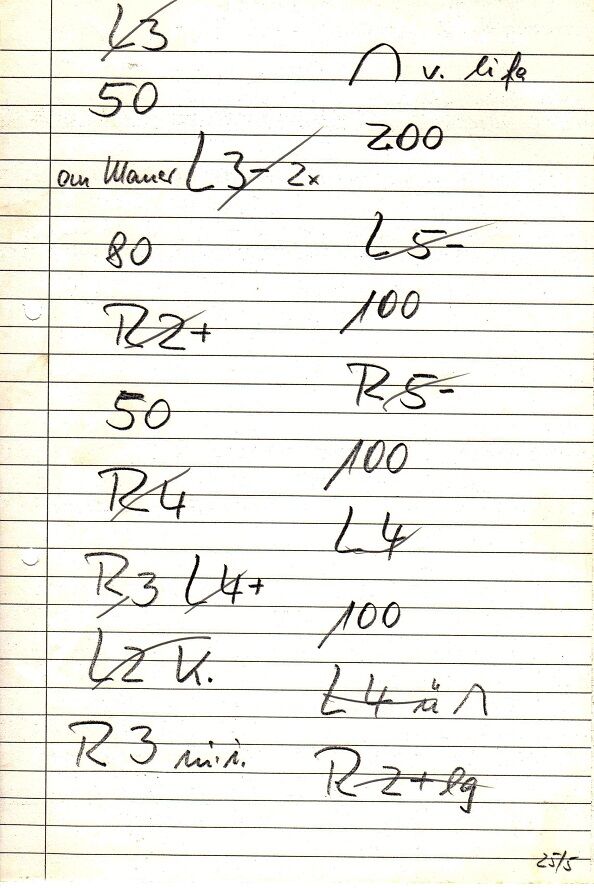 L3
50
am Mauer L3- 2x
80
R2+
50
R4
R3 L4+
L2 K.
R3 m.i.
∩ v. life
200
L5-
100
R5-
100
L4
100
L4 ü ∩
R2+ lg
25/5